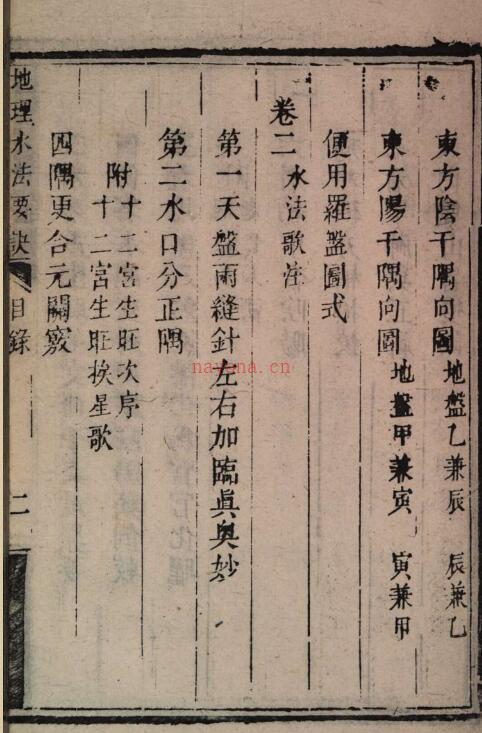 東方陰干隅向圖 地盤乙兼辰 辰兼乙
東方陽干隅向圖 地盤甲兼寅 寅兼甲
便用羅盤圖式
卷二 水法歌注
第一天盤兩縫針左右加臨眞奥妙
第二水口分正隅
附十二宮生旺次序
十二宮生旺挨星歌
四隅更合元關竅
地理水法要訣 目錄 二
nayona.cn